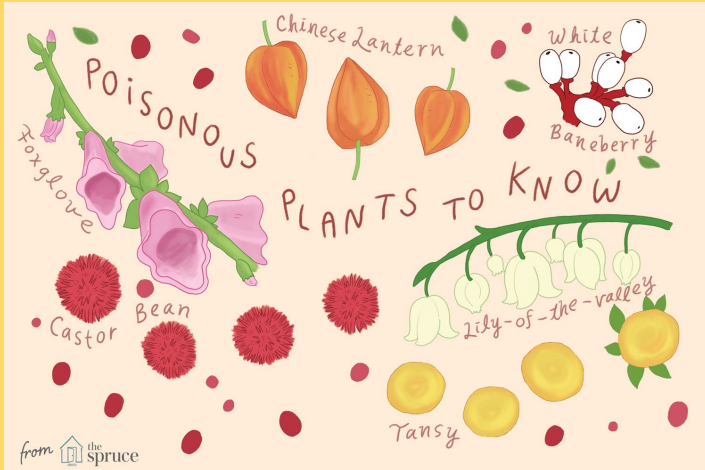 POISONOUS
PLANTS TO KNOW
Foxglove
Chinese Lantern
White
Baneberry
Castor Bean
Lily-of-the-valley
Tansy
from the spruce